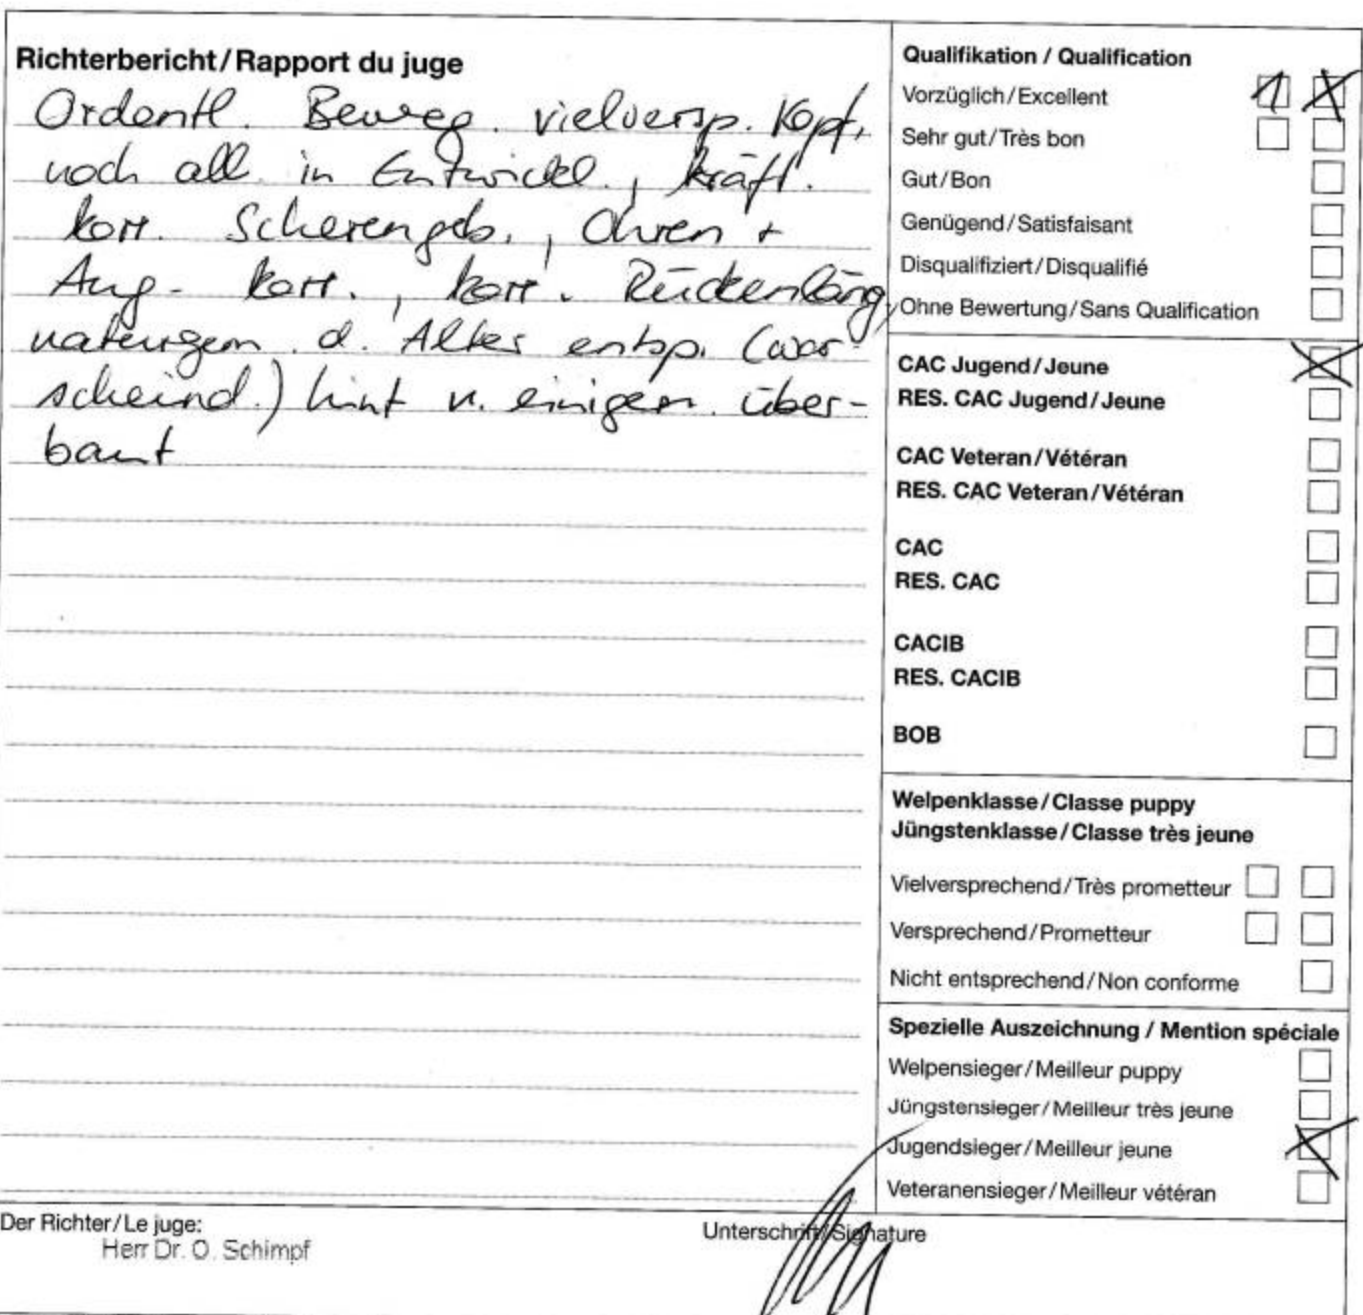 Richterbericht/Rapport du juge
Ordentl. Beweg. vielversp. Kopf,
noch all. in Entwickl., kräft.
korr. Scherengeb., Ohren +
Aug. korr., korr. Rückenläng,
d. Alter entsp. (war-
scheind.) hint n. einigem über-
baut
Qualifikation / Qualification
Vorzüglich/Excellent 1 X
Sehr gut/Très bon
Gut/Bon
Genügend/Satisfaisant
Disqualifiziert/Disqualifié
Ohne Bewertung/Sans Qualification
CAC Jugend/Jeune X
RES. CAC Jugend/Jeune
CAC Veteran/Vétéran
RES. CAC Veteran/Vétéran
CAC
RES. CAC
CACIB
RES. CACIB
BOB
Welpenklasse/Classe puppy
Jüngstenklasse/Classe très jeune
Vielversprechend/Très prometteur
Versprechend/Prometteur
Nicht entsprechend/Non conforme
Spezielle Auszeichnung / Mention spéciale
Welpensieger/Meilleur puppy
Jüngstensieger/Meilleur très jeune
Jugendsieger/Meilleur jeune X
Veteranensieger/Meilleur vétéran
Der Richter/Le juge:
Herr Dr. O. Schimpf
Unterschrift/Signature